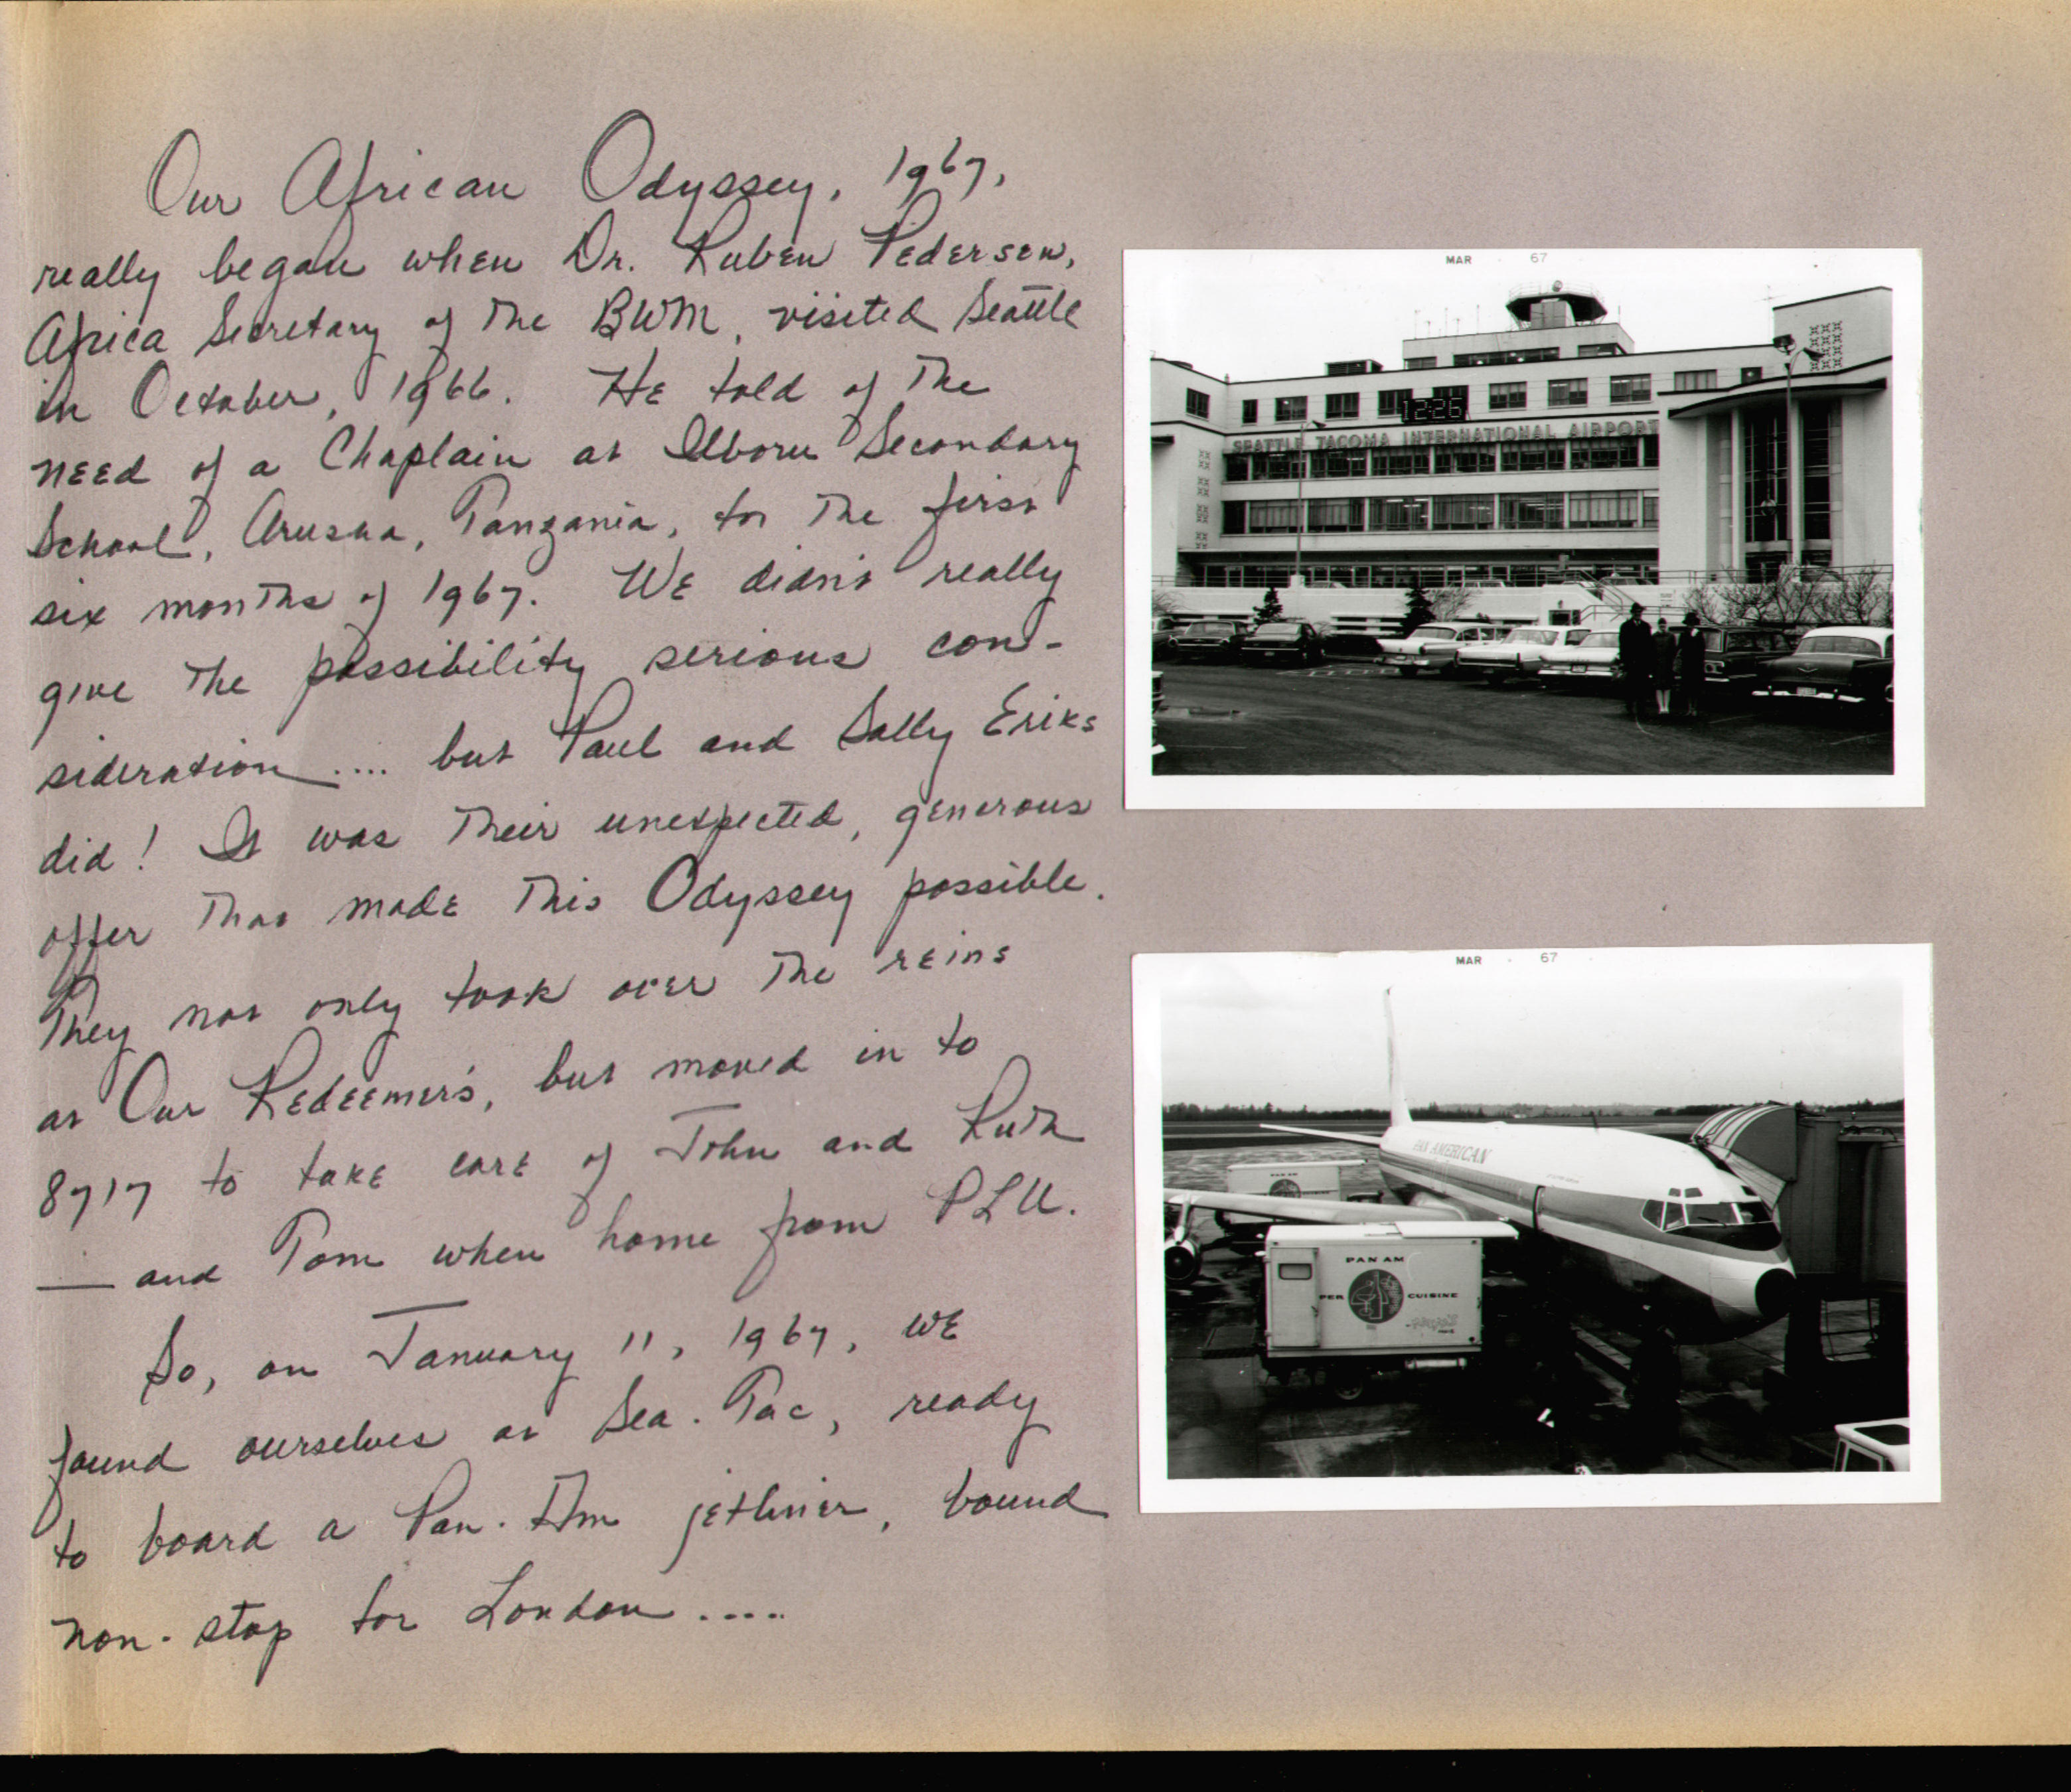 Our African Odyssey, 1967,
really began when Dr. Ruben Pedersen,
Africa Secretary of the BWM, visited Seattle
in October, 1966. He told of the
need of a Chaplain at Ilboru Secondary
School, Arusha, Tanzania, for the first
six months of 1967. We didn't really
give the possibility serious con-
sideration .... but Paul and Sally Eriks
did! It was their unexpected, generous
offer that made this Odyssey possible.
They not only took over the reins
at Our Redeemer's, but moved in to
8717 to take care of John and Ruth
— and Tom when home from PLU.
So, on January 11, 1967, we
found ourselves at Sea-Tac, ready
to board a Pan-Am jetliner, bound
non-stop for London .....
MAR 67
12:26
SEATTLE TACOMA INTERNATIONAL AIRPORT
MAR 67
PAN AMERICAN
PAN AM
PAN AM
CUISINE